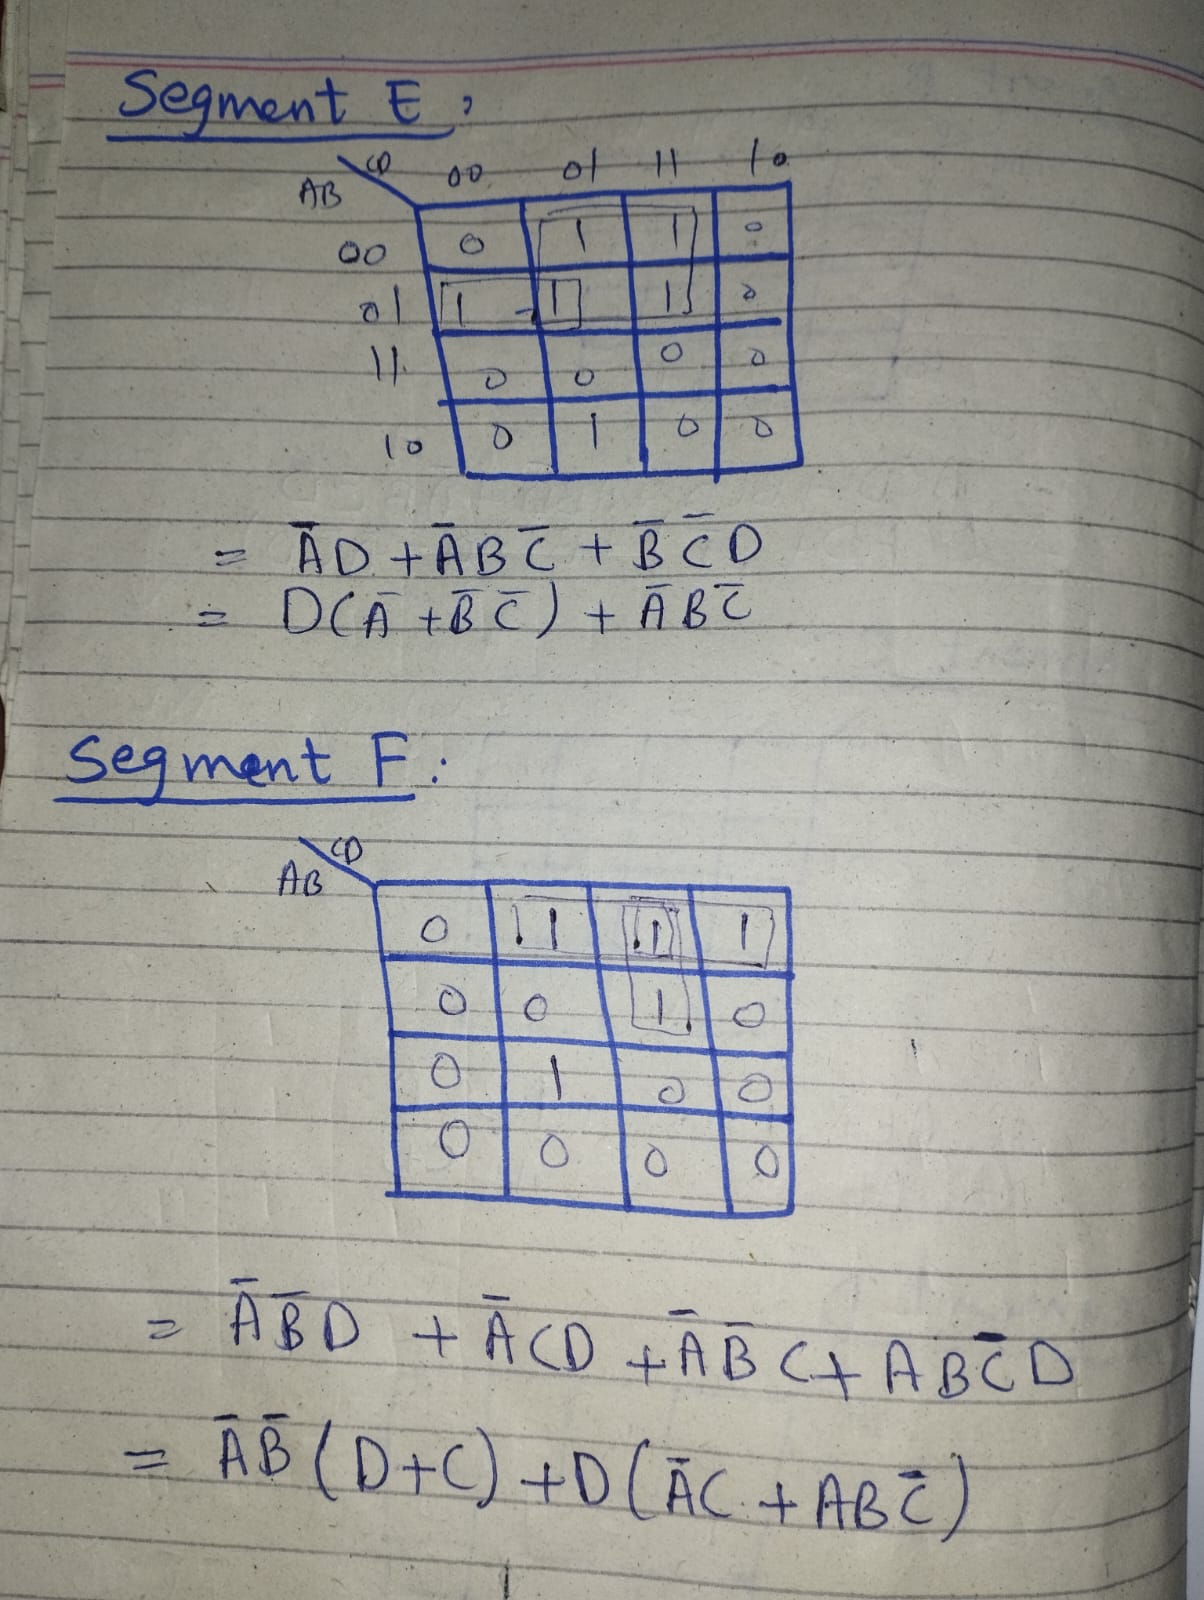 Segment E:
CD 00 01 11 10
AB
00 0 1 1 0
01 1 1 1 0
11 0 0 0 0
10 0 1 0 0
= ĀD + ĀBC̄ + B̄C̄D
= D(Ā + B̄C̄) + ĀBC̄
Segment F:
CD
AB
0 1 1 1
0 0 1 0
0 1 0 0
0 0 0 0
= ĀB̄D + ĀCD + ĀB̄C + ABC̄D
= ĀB̄(D+C) + D(ĀC + ABC̄)